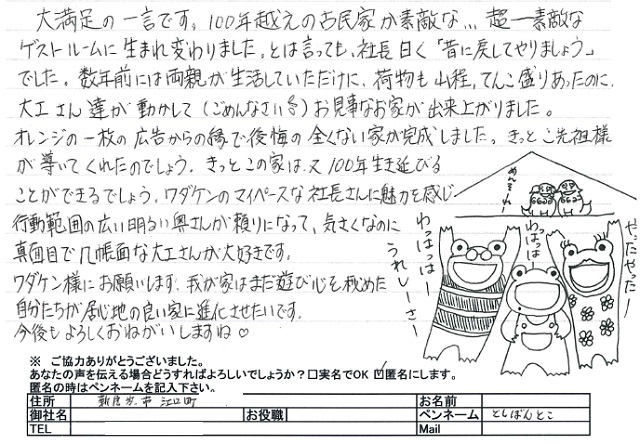 大満足の一言です。100年越えの古民家が素敵な... 超一素敵な
ゲストルームに生まれ変わりました。とは言っても、社長曰く「昔に戻してやりましょう」
でした。数年前には両親が生活していただけに、荷物も山程、てんこ盛りあったのに、
大工さん達が動かして(ごめんなさい)お見事なお家が出来上がりました。
オレンジの一枚の広告からの縁で後悔の全くない家が完成しました。きっとご先祖様
が導いてくれたのでしょう。きっとこの家は又100年生き延びる
ことができるでしょう。ワダケンのマイペースな社長さんに魅力を感じ
行動範囲の広い明るい奥さんが頼りになって、気さくなのに
真面目で几帳面な大工さんが大好きです。
ワダケン様にお願いします。我が家はまだ遊び心を秘めた
自分たちが居心地の良い家に進化させたいです。
今後もよろしくおねがいしますね♡
めんそーれー
やったやったー
わっはっは
わっはっはー
うれしーさー
※ ご協力ありがとうございました。
あなたの声を伝える場合どうすればよろしいでしょうか?□実名でOK ☑匿名にします。
匿名の時はペンネームを記入下さい。
住所 新居浜市江口町 お名前
御社名 お役職 ペンネーム としぼんとこ
TEL Mail